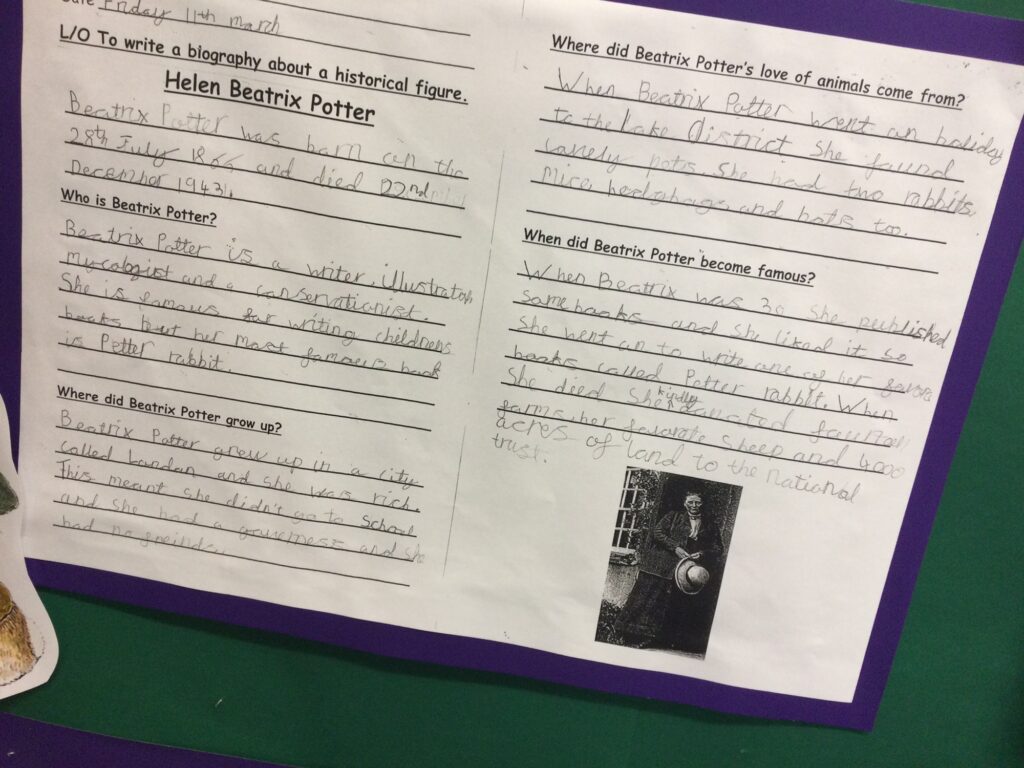 Date Friday 11th march
L/O To write a biography about a historical figure.
Helen Beatrix Potter
Beatrix Potter was born on the
28th July 1866 and died 22nd
December 1943.
Who is Beatrix Potter?
Beatrix Potter is a writer, illustrator,
mycologist and a conservationist.
She is famous for writing childrens
books but her most famous book
is Petter rabbit.
Where did Beatrix Potter grow up?
Beatrix Potter grew up in a city
called London and she was rich.
This meant she didn't go to school
and she had a governess and she
had no freinds.
Where did Beatrix Potter's love of animals come from?
When Beatrix Potter went on holiday
to the Lake District she found
lovely pets. She had two rabbits,
mice, hedghogs and bats too.
When did Beatrix Potter become famous?
When Beatrix was 30 she published
some books and she liked it so
she went on to write one of her favore
books called Potter rabbit. When
She died she kindly donated
farms, her favorate sheep and 4000
acres of land to the national
trust.